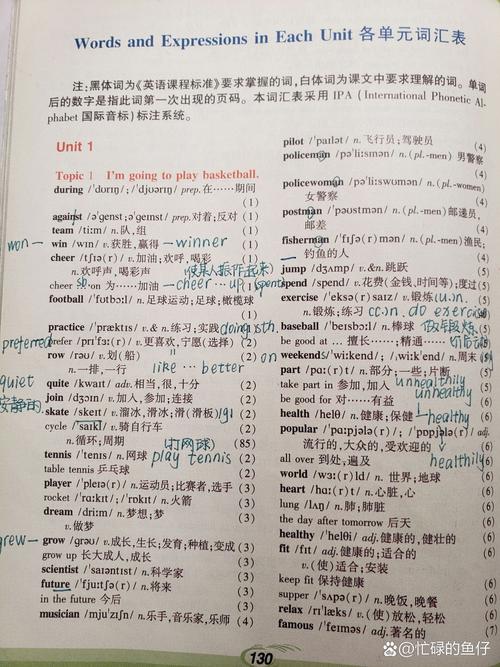 Words and Expressions in Each Unit 各单元词汇表
注:黑体词为《英语课程标准》要求掌握的词,白体词为课文中要求理解的词。单词
后的数字是指此词第一次出现的页码。本词汇表采用 IPA (International Phonetic Al-
phabet 国际音标) 标注系统。
Unit 1
Topic 1 I'm going to play basketball.
during /'dʊrɪŋ/; /'djʊərɪŋ/ prep.在……期间
(1)
against /ə'genst;ə'geɪnst/ prep.对着;反对 (1)
team /tiːm/ n.队,组 (1)
won — win /wɪn/ v.获胜,赢得 — winner (1)
cheer /tʃɪə(r)/ v.加油;欢呼,喝彩
n.欢呼声,喝彩声 使某人振作起来 (1)
cheer sb. on 为……加油 — cheer … up (1)
football /'fʊtbɔːl/ n.足球运动;足球;橄榄球
(1)
practice /'præktɪs/ v.& n.练习;实践 doing sth. (1)
preferred prefer /prɪ'fɜː(r)/ v.更喜欢,宁愿(选择) (2)
row /rəʊ/ v.划(船)
n.一排,一行 like … better (2)
quiet quite /kwaɪt/ adv.相当,很,十分 (2)
安静的 join /dʒɔɪn/ v.加入,参加;连接 (2)
skate /skeɪt/ v.溜冰,滑冰;滑(滑板) (2)
cycle /'saɪkl/ v.骑自行车
n.循环;周期 (打网球) (85)
tennis /'tenɪs/ n.网球 play tennis (2)
table tennis 乒乓球 (2)
player /'pleɪə(r)/ n.运动员;比赛者,选手 (3)
rocket /'rɑːkɪt/;/'rɒkɪt/ n.火箭 (3)
dream /driːm/ n.梦想;梦
v.做梦 (3)
grew — grow /grəʊ/ v.成长,生长;发育;种植;变成 (3)
grow up 长大成人,成长 (3)
scientist /'saɪəntɪst/ n.科学家 (3)
future /'fjuːtʃə(r)/ n.将来 (3)
in the future 今后 (3)
musician /mjuː'zɪʃn/ n.乐手,音乐家,乐师 (3)
pilot /'paɪlət/ n.飞行员;驾驶员 (4)
policeman /pə'liːsmən/ n.(pl.-men) 男警察
(4)
policewoman /pə'liːswʊmən/ n.(pl.-women)
女警察 (4)
postman /'pəʊstmən/ n.(pl.-men) 邮递员,
邮差 (4)
fisherman /'fɪʃə(r)mən/ n.(pl.-men) 渔民;
钓鱼的人 (4)
jump /dʒʌmp/ v.&n.跳跃 (4)
spend /spend/ v.花费(金钱、时间等);度过 (5)
exercise /'eksə(r)saɪz/ v.锻炼
n.锻炼;练习 do exercise (5)
baseball /'beɪsbɔːl/ n.棒球 (5)
be good at … 擅长……;精通…… (5)
weekend /ˌwiː'kend/; /ˌwiːk'end/ n.周末 (5)
part /pɑː(r)t/ n.部分;一些;片断 (5)
take part in 参加,加入 unhealthily (5)
be good for 对……有益 unhealthy (6)
health /helθ/ n.健康;保健 healthy (6)
popular /'pɑːpjələ(r)/; /'pɒpjələ(r)/ adj.
流行的,大众的,受欢迎的 (6)
all over 到处,遍及 healthily (6)
world /wɜː(r)ld/ n. 世界;地球 (6)
heart /hɑː(r)t/ n.心脏,心 (6)
lung /lʌŋ/ n.肺;肺脏 (6)
the day after tomorrow 后天 (6)
healthy /'helθi/ adj.健康的,健壮的 (6)
fit /fɪt/ adj.健康的;适合的
v.(使)适合;安装 (6)
keep fit 保持健康 (6)
supper /'sʌpə(r)/ n.晚饭,晚餐 (6)
relax /rɪ'læks/ v.(使)放松,轻松 (6)
famous /'feɪməs/ adj.著名的 (7)
130
忙碌的鱼仔